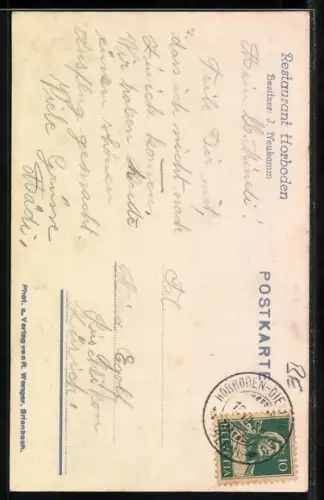 Restaurant Horboden
Besitzer: J. Neukomm
Mein lb. Mineli!
Teile Dir mit,
dass ich nicht nach
Zürich komme,
Wir haben heute
einen schönen
Ausflug gemacht.
Viele Grüsse
Mädi,
Phot. u. Verlag von R. Wenger, Erlenbach.
POSTKARTE
RE
Frl.
Egolf
Rüschlikon
Zürich
HORBODEN-DIE
10
HELVETIA